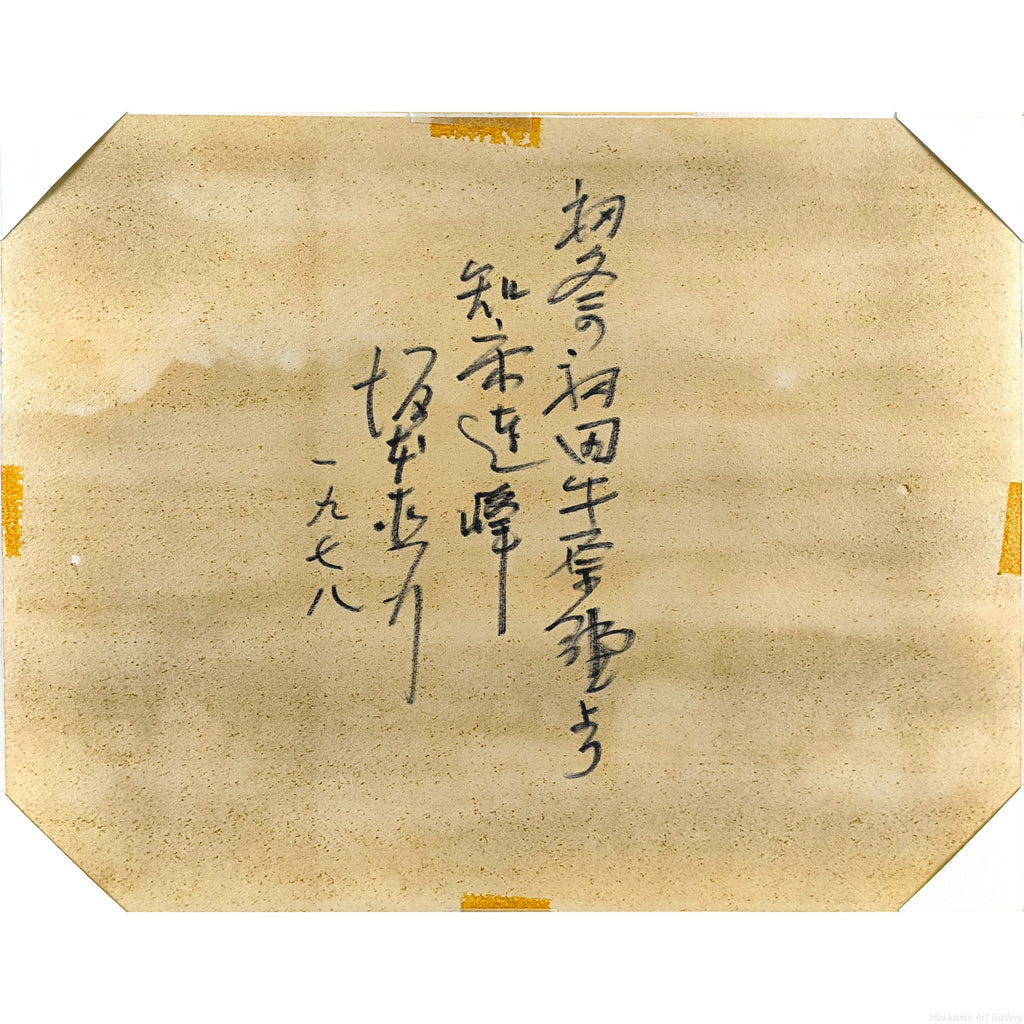 初冬の初田牛原野より
知床連峰
坂本直行
一九七八
Hokkaido Art Gallery